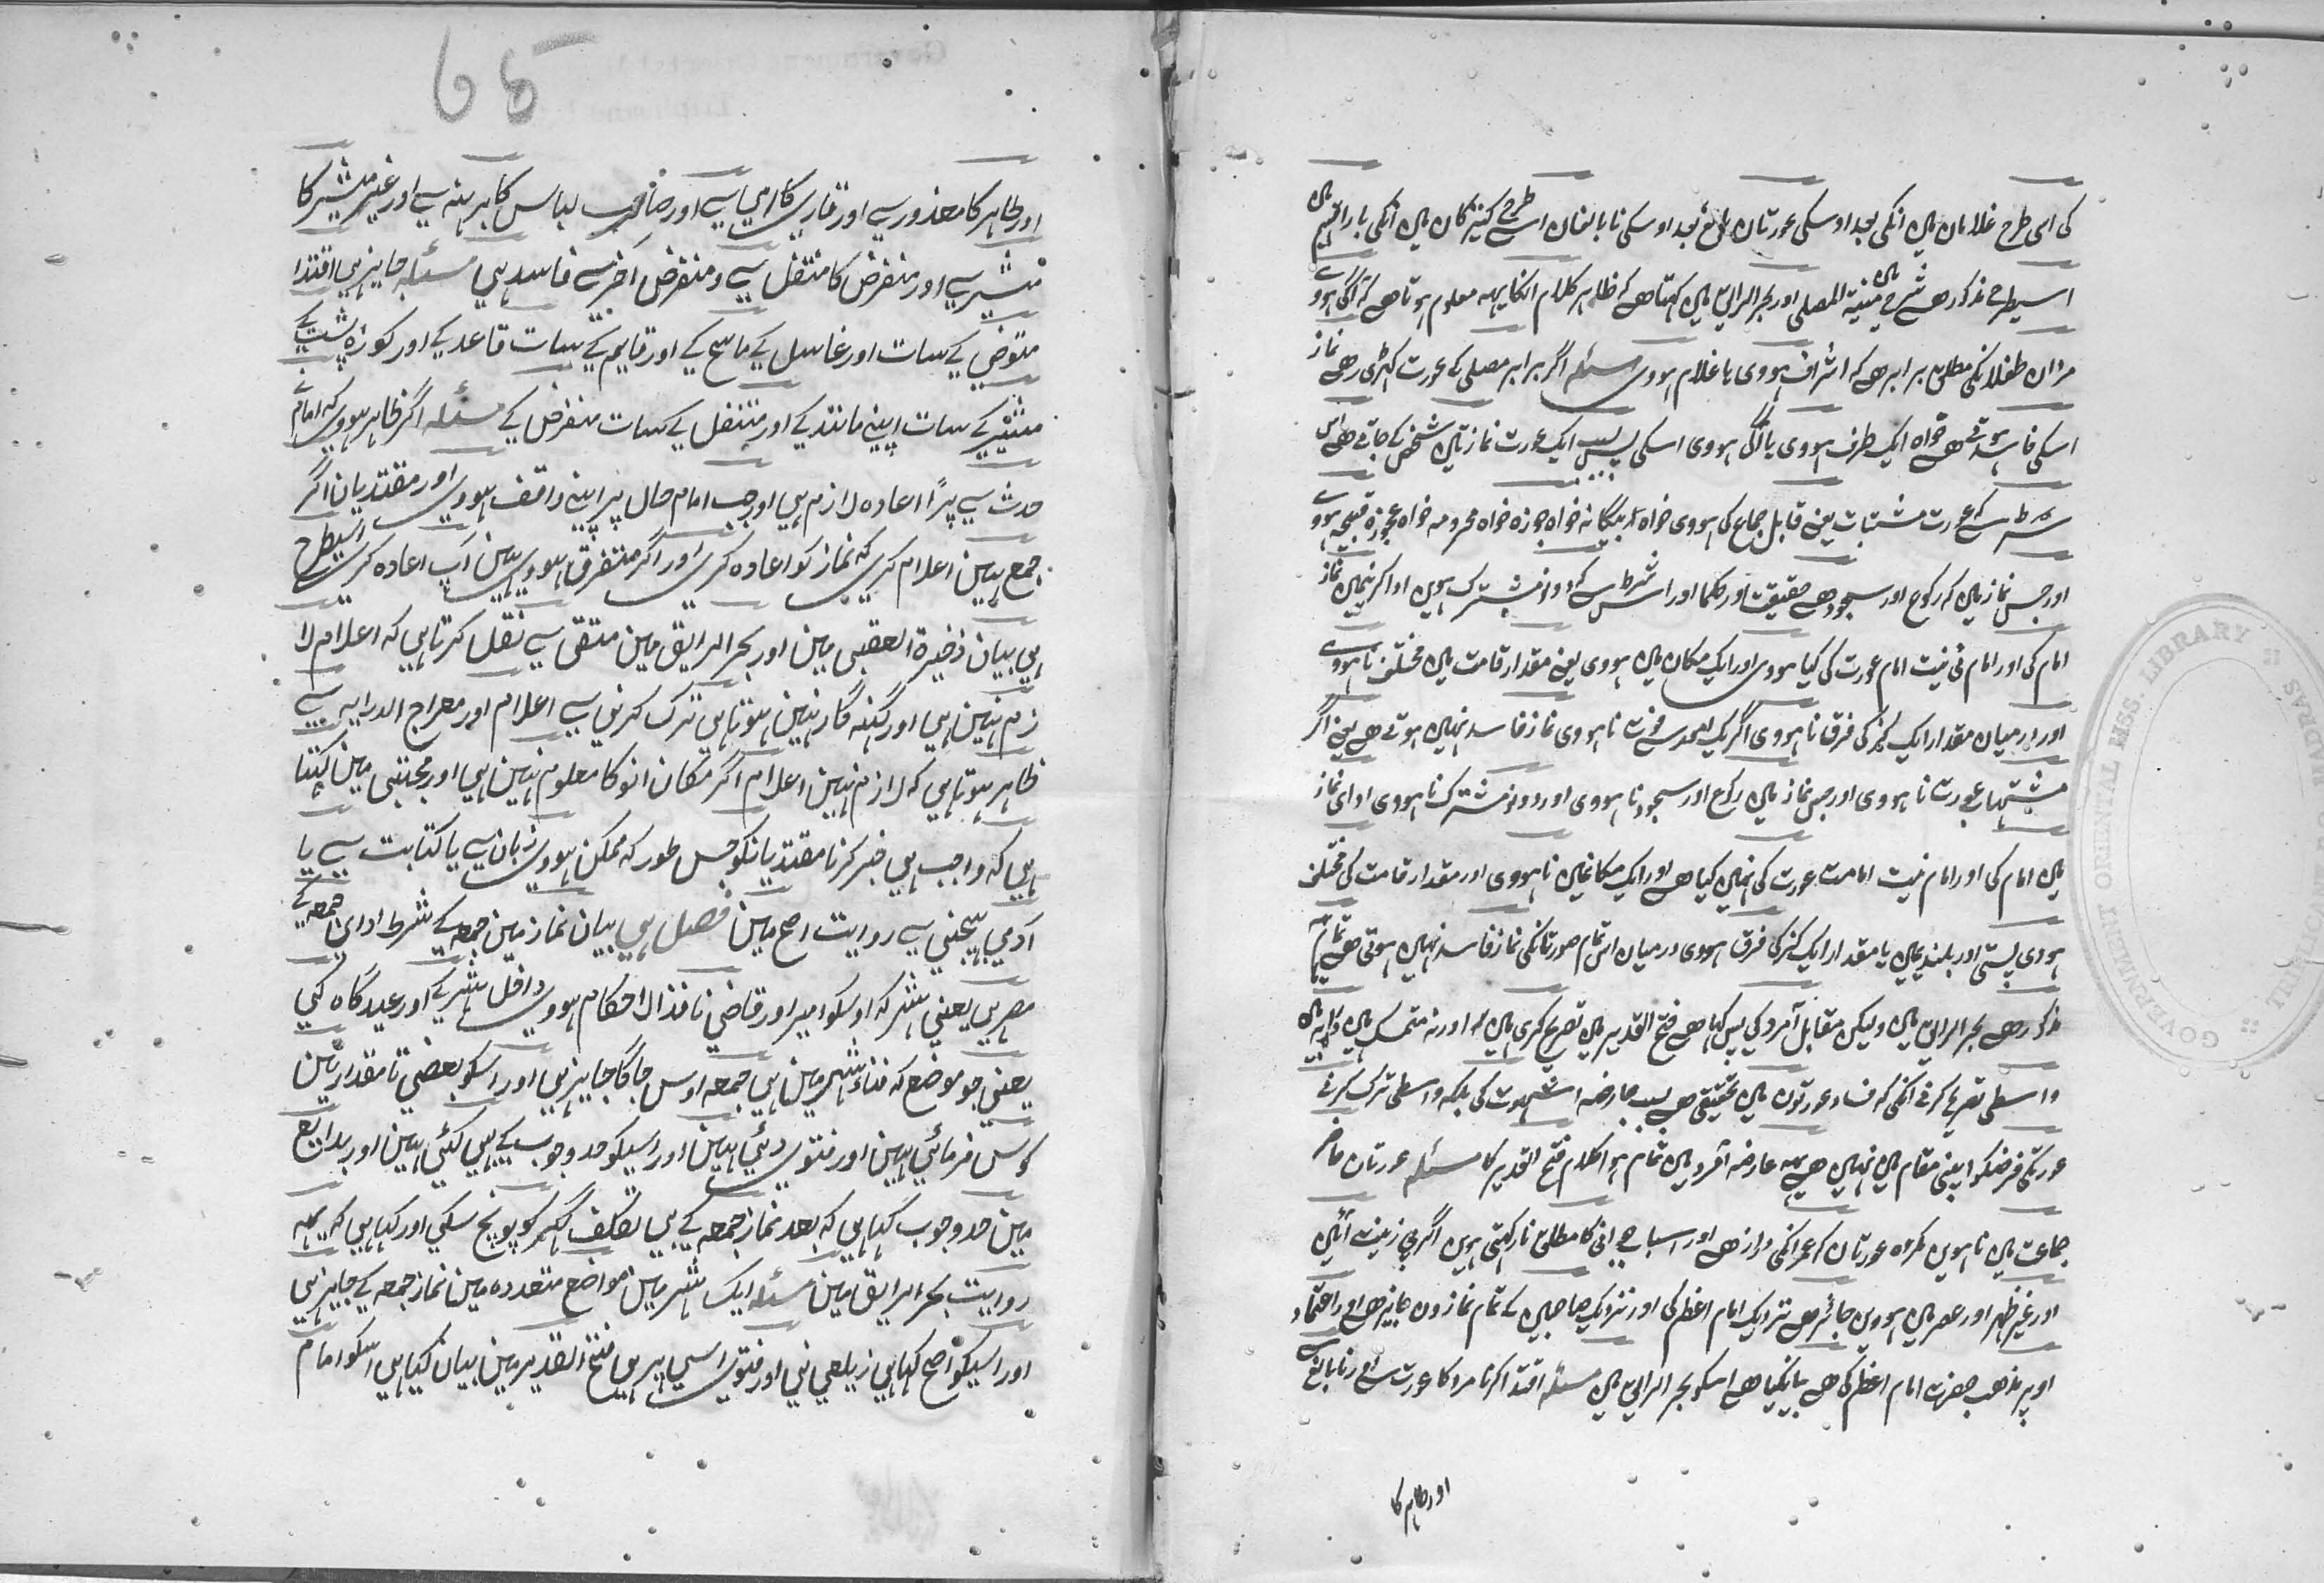 کی اسی طرح غلامان ہیں انکی بعد اوسکی عورتان بالغ بعد اوسکی نابالغان اسی طرح کنیزکان ہیں انکی
اسیطرح مذکور ہے شرح منیۃ المصلی میں اور بحر الرایق میں کہتا ہے کہ ظاہر کلام انکا یہہ معلوم ہوتا ہے کہ آگی ہووے
مردان طفلانکی مطلق برابر ہے کہ اشراف ہووی یا غلام ہووی مسئلہ اگر برابر مصلی کے عورت کہڑی رہے نماز
اسکی فاسد ہوتی ہے خواہ ایک طرف ہووی یا آگی ہووی اسکی پس ایک عورت نماز تین شخص کے جاتی ہے
شرط کہ عورت مشتہات یعنے قابل جماع کی ہووی خواہ بیگانہ خواہ جوزہ خواہ محرومہ خواہ عجوزہ قبیحہ ہووے
اور جس نماز میں کہ رکوع اور سجود ہے حقیقت اور حکما اور اس شرط سے کہ دونو مشترک ہوین ادا کرنیمیں نماز
امام کی اور امام نی نیت امام عورت کی کیا ہووی اور ایک مکان میں ہووی یعنے مقدار قامت میں مختلف نا ہووے
اور درمیان مقدار ایک کنر کی فرق نا ہووی اگر ایک نا ہووی نماز فاسد نہیں ہوتے ہے یعنے اگر
مشتہات عورت نا ہووی اور جس نماز میں رکوع اور سجود نا ہووی اور دونو مشترک نا ہووی ادای نماز
میں امام کی اور امام نیت امامت عورت کی نہیں کیا ہے اور ایک مکانمیں نا ہووی اور مقدار قامت کی مختلف
ہووی پستی اور بلندیمیں یا مقدار ایک کنر کی فرق ہووی درمیان اس تمام صورتانکی نماز فاسد نہیں ہوتی ہے
مذکور ہے بحر الرایق میں ولیکن مقابل آمرد کی پس کہا ہے فتح القدیر میں تصریح کری ہیں اور نہ متمسک ہیں
واسطی تصریح کرنے انکی کہ فساد عورتوں میں تحقیقی ہے بسبب عارضہ شہوت کی بلکہ واسطی ترک کرنے
عورتکی فرضکو اپنی مقام میں نہیں ہے یہہ عارضہ آمرد میں تمام ہوا کلام فتح القدیر کا مسئلہ عورتان حاضر
جماعت میں نا ہوین مکروہ عورتان کہ عمر انکی دراز ہے اور اسباب جوانی کا مطلق نا رکہتی ہوین اگر بی زینت آئیں
اور غیر ظہر اور عصر میں ہووین جائز ہے نزدیک امام اعظم کی اور نزدیک صاحبین کے تمام نمازون جایز ہے اور اعتماد
اوپر مذہب حضرت امام اعظم کی ہے بیانکیا ہے اسکو بحر الرایق میں مسئلہ اقتدا کرنا مرد کا عورت سے اور نابالغ سے
اور طاہر کا
65
اور طاہر کا معذور سے اور قاری کا امی سے اور صاحب لباس کا برہنہ سے اور غیر مشیر کا
مشیر سے اور متفرض کا متنفل سے و متفرض آخر سے فاسد ہی مسئلہ جایز ہی اقتدا
متوضی کے سات اور غاسل کے ماسح کے اور قایم کے سات قاعد کے اور کوزہ پشت کے
مشیر کے سات اپنے مانند کے اور متنفل کے سات متفرض کے مسئلہ اگر ظاہر ہووی کہ امام نے
حدث سے پڑا اعادہ لازم ہی اور جب امام حال پر اپنے واقف ہووی اور مقتدیان اگر
جمع ہین اعلام کری کہ نماز کو اعادہ کری اور اگر متفرق ہووی ہین آپ اعادہ کری اسیطرح
ہی بیان ذخیرۃ العقبی مین اور بحر الرایق مین متقی سے نقل کرتا ہی کہ اعلام لا
زم نہین ہی اور گنہ گار نہین ہوتا ہی ترک کرنی سے اعلام اور معراج الدرایہ سے
ظاہر ہوتا ہی کہ لازم نہین اعلام اگر مکان انو کا معلوم نہین ہی اور مجتبی مین کہتا
ہی کہ واجب ہی خبر کرنا مقتدیانکو جس طور کہ ممکن ہووی زبان سے یا کتابت سے یا
آدمی بہیجنی سے روایت اصح مین فصل ہی بیان نماز مین جمعہ کے شرط ادای جمعہ کے
مصر ہی یعنی شہر کہ اوسکو امیر اور قاضی نافذ الاحکام ہووی داخل شہر کے اور عیدگاہ کی
یعنی جو موضع کہ فناء شہر مین ہی جمعہ اوس جاگا جایز ہی اور اسکو بعضی تا مقدار تین
کوس فرمائی ہین اور فتوی دئی ہین اور اسیکو حد وجوب کے ہی کئی ہین اور بدایع
مین حد وجوب کہا ہی کہ بعد نماز جمعہ کے بی تکلف گہر کو پونچ سکی اور کہا ہی کہ یہہ
روایت بحر الرایق مین مسئلہ ایک شہر مین مواضع متعددہ مین نماز جمعہ کے جایز ہی
اور اسیکو اصح کہا ہی زیلعی نی اور فتوی اسی پر ہی فتح القدیر مین بیان کیا ہی اسکو امام
GOVERNMENT ORIENTAL MSS. LIBRARY MADRAS